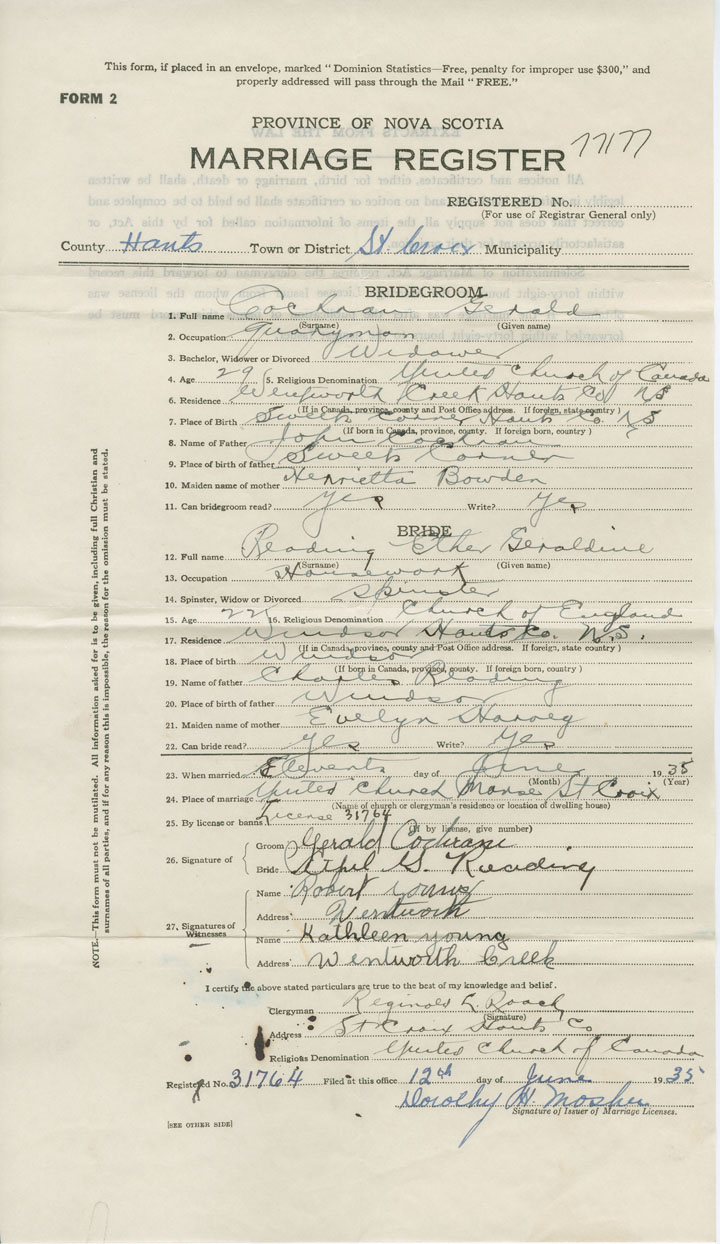 This form, if placed in an envelope, marked "Dominion Statistics—Free, penalty for improper use $300," and
properly addressed will pass through the Mail "FREE."
FORM 2
PROVINCE OF NOVA SCOTIA
MARRIAGE REGISTER
REGISTERED No.
(For use of Registrar General only)
County Hants Town or District St Croix Municipality
BRIDEGROOM
1. Full name Cochran Gerald
(Surname) (Given name)
2. Occupation Quaryman
3. Bachelor, Widower or Divorced Widower
4. Age 29 5. Religious Denomination United Church of Canada
6. Residence Wentworth Creek Hants Co NS
(If in Canada, province, county and Post Office address. If foreign, state country)
7. Place of Birth Sweets Corner Hants Co. NS
(If born in Canada, province, county. If foreign born, country)
8. Name of Father John Cochran
9. Place of birth of father Sweets Corner
10. Maiden name of mother Henrietta Bowden
11. Can bridegroom read? yes Write? yes
BRIDE
12. Full name Reading Ethel Geraldine
(Surname) (Given name)
13. Occupation Housework
14. Spinster, Widow or Divorced Spinster
15. Age 22 16. Religious Denomination Church of England
17. Residence Windsor Hants Co. N.S.
(If in Canada, province, county and Post Office address. If foreign, state country)
18. Place of birth Windsor
(If born in Canada, province, county. If foreign born, country)
19. Name of father Charles Reading
20. Place of birth of father Windsor
21. Maiden name of mother Evelyn Harvey
22. Can bride read? yes Write? yes
23. When married Eleventh day of June 1935
(Month) (Year)
24. Place of marriage United Church Manse St Croix
(Name of church or clergyman's residence or location of dwelling house)
25. By license or banns License 31764
(If by license, give number)
26. Signature of
Groom Gerald Cochran
Bride Ethel G. Reading
27. Signatures of Witnesses
Name Robert young
Address Wentworth
Name Kathleen young
Address Wentworth Creek
I certify the above stated particulars are true to the best of my knowledge and belief.
Clergyman Reginald Roach
(Signature)
Address St Croix Hants Co
Religious Denomination United Church of Canada
Registered No. 31764 Filed at this office 12th day of June 1935
Dorothy H. Mosher
Signature of Issuer of Marriage Licenses.
[SEE OTHER SIDE]
NOTE.—This form must not be mutilated. All information asked for is to be given, including full Christian and
surnames of all parties, and if for any reason this is impossible, the reason for the omission must be stated.